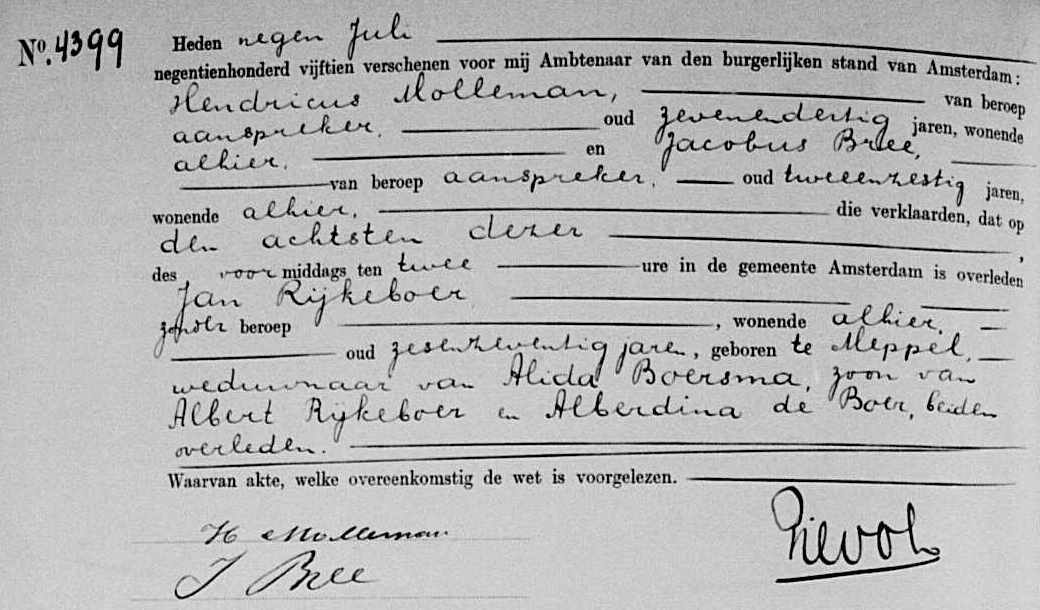 No. 4399 Heden negen Juli
negentienhonderd vijftien verschenen voor mij Ambtenaar van den burgerlijken stand van Amsterdam:
Hendricus Molleman, van beroep
aanspreker, oud zevenendertig jaren, wonende
alhier, en Jacobus Bree,
van beroep aanspreker, oud tweeenzestig jaren,
wonende alhier, die verklaarden, dat op
den achtsten dezer,
des voormiddags ten twee ure in de gemeente Amsterdam is overleden
Jan Rijkeboer
zonder beroep, wonende alhier,
oud zesenzeventig jaren, geboren te Meppel,
weduwnaar van Alida Boersma, zoon van
Albert Rijkeboer en Alberdina de Boer, beiden
overleden.
Waarvan akte, welke overeenkomstig de wet is voorgelezen.
H Molleman.
J Bree